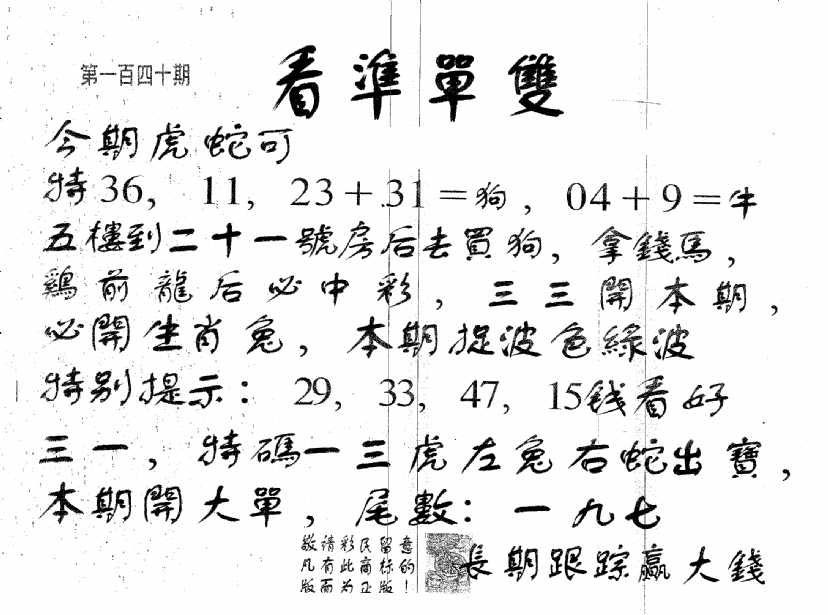 第一百四十期
看準單雙
今期虎蛇可
特36, 11, 23+31=狗, 04+9=牛
五樓到二十一號房后去買狗, 拿錢馬,
鷄前龍后必中彩, 三三開本期,
必開生肖兔, 本期捉波色綠波
特别提示: 29, 33, 47, 15钱看好
三一, 特碼一三虎左兔右蛇出寶,
本期開大單, 尾數: 一九七
敬请彩民留意
凡有此商标的!
版而为正版
長期跟踪贏大錢